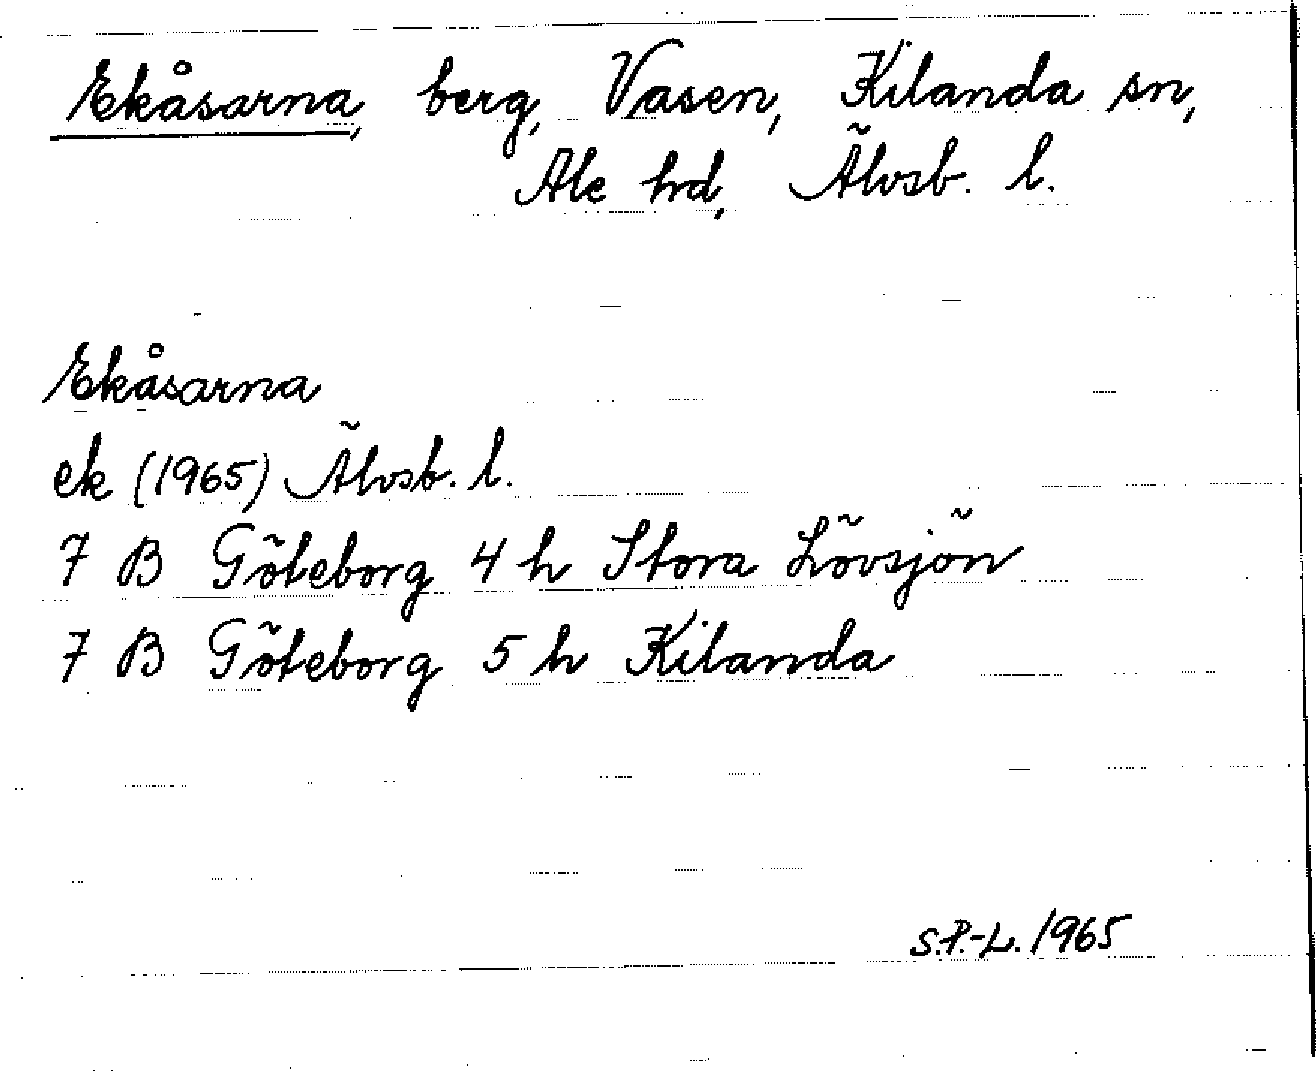 Ekåsarna, berg, Vasen, Kilanda sn,
Ale hd, Älvsb. l.
Ekåsarna
ek (1965) Älvsb. l.
7 B Göteborg 4 h Stora Lövsjön
7 B Göteborg 5 h Kilanda
S.P.-L. 1965